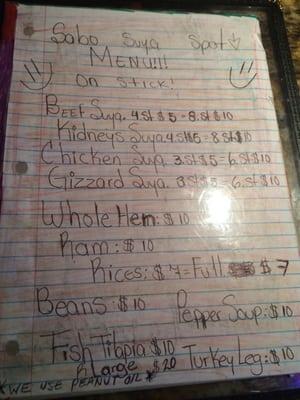 Sabo Suya Spot
MENU!!!
on stick!
BEEF Suya. 4 st $5 = 8. st $10
Kidneys Suya 4 st $5 = 8 st $10
Chicken Suya 3. st $5 = 6. st $10
Gizzard Suya. 3 st $5 = 6. st $10
Whole Hen: $10
Ram: $10
Rices: $7 = Full $7
Beans: $10 Pepper Soup: $10
Fish Tilapia $10
Large $20 Turkey Leg: $10
*WE USE PEANUT OIL*